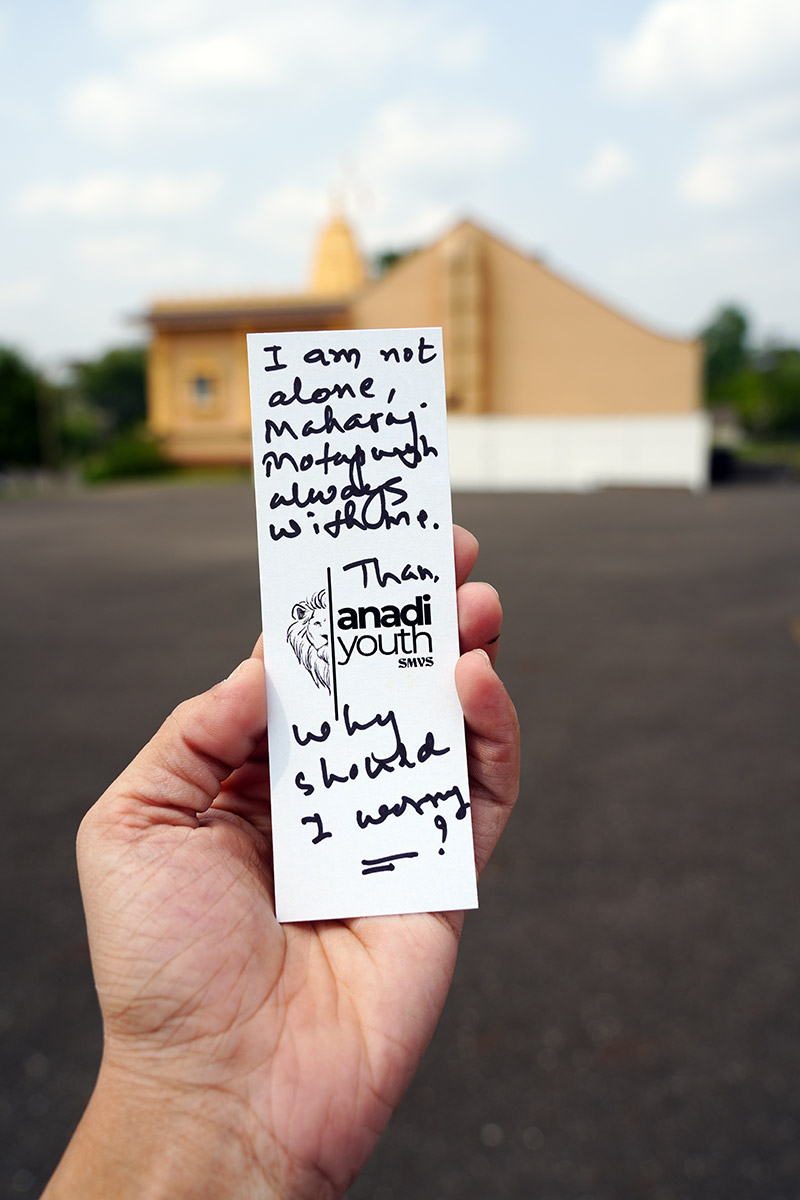 I am not
alone,
Maharaj.
Motapurush
always
with me.
Than,
anadi
youth
SMVS
Why
should
I worry
?